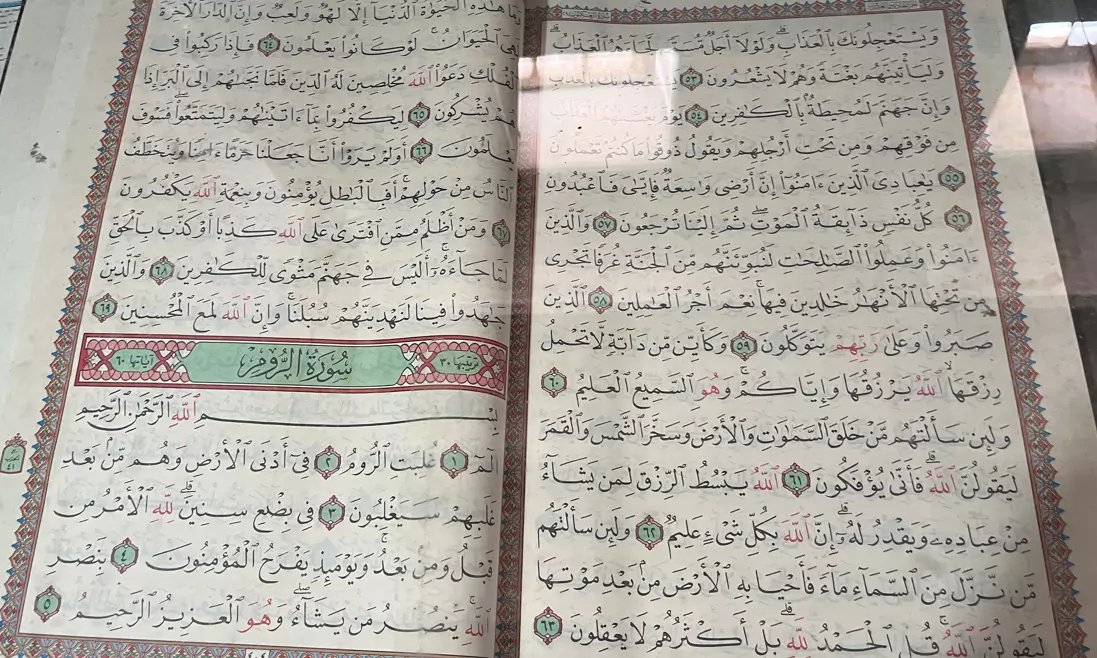 وَيَسْتَعْجِلُونَكَ بِالْعَذَابِ وَلَوْلَا أَجَلٌ مُّسَمًّى لَّجَاءَهُمُ الْعَذَابُ
وَلَيَأْتِيَنَّهُم بَغْتَةً وَهُمْ لَا يَشْعُرُونَ ٥٣ يَسْتَعْجِلُونَكَ بِالْعَذَابِ
وَإِنَّ جَهَنَّمَ لَمُحِيطَةٌ بِالْكَافِرِينَ ٥٤ يَوْمَ يَغْشَاهُمُ الْعَذَابُ
مِن فَوْقِهِمْ وَمِن تَحْتِ أَرْجُلِهِمْ وَيَقُولُ ذُوقُوا مَا كُنتُمْ تَعْمَلُونَ
٥٥ يَاعِبَادِيَ الَّذِينَ ءَامَنُوا إِنَّ أَرْضِي وَاسِعَةٌ فَإِيَّايَ فَاعْبُدُونِ
٥٦ كُلُّ نَفْسٍ ذَائِقَةُ الْمَوْتِ ثُمَّ إِلَيْنَا تُرْجَعُونَ ٥٧ وَالَّذِينَ
ءَامَنُوا وَعَمِلُوا الصَّالِحَاتِ لَنُبَوِّئَنَّهُم مِّنَ الْجَنَّةِ غُرَفًا تَجْرِي
مِن تَحْتِهَا الْأَنْهَارُ خَالِدِينَ فِيهَا نِعْمَ أَجْرُ الْعَامِلِينَ ٥٨ الَّذِينَ
صَبَرُوا وَعَلَى رَبِّهِمْ يَتَوَكَّلُونَ ٥٩ وَكَأَيِّن مِّن دَابَّةٍ لَّا تَحْمِلُ
رِزْقَهَا اللَّهُ يَرْزُقُهَا وَإِيَّاكُمْ وَهُوَ السَّمِيعُ الْعَلِيمُ ٦٠
وَلَئِن سَأَلْتَهُم مَّنْ خَلَقَ السَّمَاوَاتِ وَالْأَرْضَ وَسَخَّرَ الشَّمْسَ وَالْقَمَرَ
لَيَقُولُنَّ اللَّهُ فَأَنَّى يُؤْفَكُونَ ٦١ اللَّهُ يَبْسُطُ الرِّزْقَ لِمَن يَشَاءُ
مِنْ عِبَادِهِ وَيَقْدِرُ لَهُ إِنَّ اللَّهَ بِكُلِّ شَيْءٍ عَلِيمٌ ٦٢ وَلَئِن سَأَلْتَهُم
مَّن نَّزَّلَ مِنَ السَّمَاءِ مَاءً فَأَحْيَا بِهِ الْأَرْضَ مِن بَعْدِ مَوْتِهَا
لَيَقُولُنَّ اللَّهُ قُلِ الْحَمْدُ لِلَّهِ بَلْ أَكْثَرُهُمْ لَا يَعْقِلُونَ ٦٣
وَمَا هَذِهِ الْحَيَوٰةُ الدُّنْيَا إِلَّا لَهْوٌ وَلَعِبٌ وَإِنَّ الدَّارَ الْآخِرَةَ
لَهِيَ الْحَيَوَانُ لَوْ كَانُوا يَعْلَمُونَ ٦٤ فَإِذَا رَكِبُوا فِي
الْفُلْكِ دَعَوُا اللَّهَ مُخْلِصِينَ لَهُ الدِّينَ فَلَمَّا نَجَّاهُمْ إِلَى الْبَرِّ إِذَا
هُمْ يُشْرِكُونَ ٦٥ لِيَكْفُرُوا بِمَا ءَاتَيْنَاهُمْ وَلِيَتَمَتَّعُوا فَسَوْفَ
يَعْلَمُونَ ٦٦ أَوَلَمْ يَرَوْا أَنَّا جَعَلْنَا حَرَمًا ءَامِنًا وَيُتَخَطَّفُ
النَّاسُ مِنْ حَوْلِهِمْ أَفَبِالْبَاطِلِ يُؤْمِنُونَ وَبِنِعْمَةِ اللَّهِ يَكْفُرُونَ
٦٧ وَمَنْ أَظْلَمُ مِمَّنِ افْتَرَى عَلَى اللَّهِ كَذِبًا أَوْ كَذَّبَ بِالْحَقِّ
لَمَّا جَاءَهُ أَلَيْسَ فِي جَهَنَّمَ مَثْوًى لِّلْكَافِرِينَ ٦٨ وَالَّذِينَ
جَاهَدُوا فِينَا لَنَهْدِيَنَّهُمْ سُبُلَنَا وَإِنَّ اللَّهَ لَمَعَ الْمُحْسِنِينَ ٦٩
ترتيبها ٣٠ سُورَةُ الرُّومِ آياتها ٦٠
بِسْمِ اللَّهِ الرَّحْمَٰنِ الرَّحِيمِ
الم ١ غُلِبَتِ الرُّومُ ٢ فِي أَدْنَى الْأَرْضِ وَهُم مِّن بَعْدِ
غَلَبِهِمْ سَيَغْلِبُونَ ٣ فِي بِضْعِ سِنِينَ لِلَّهِ الْأَمْرُ مِن
قَبْلُ وَمِن بَعْدُ وَيَوْمَئِذٍ يَفْرَحُ الْمُؤْمِنُونَ ٤ بِنَصْرِ
اللَّهِ يَنصُرُ مَن يَشَاءُ وَهُوَ الْعَزِيزُ الرَّحِيمُ ٥